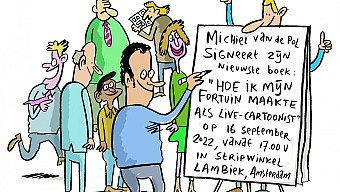 Michiel van de Pol
signeert zijn
nieuwste boek:
"Hoe ik mijn
fortuin maakte
als live-cartoonist"
op 16 september
2022, vanaf 17.00 u
in stripwinkel
Lambiek, Amsterdam